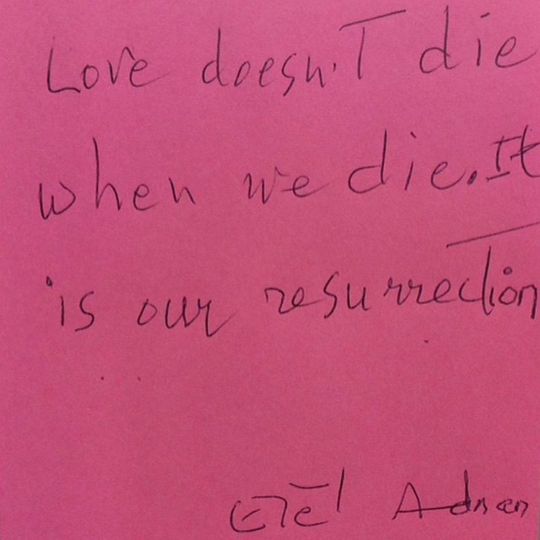 Love doesn't die
when we die. It
is our resurrection
Etel Adnan